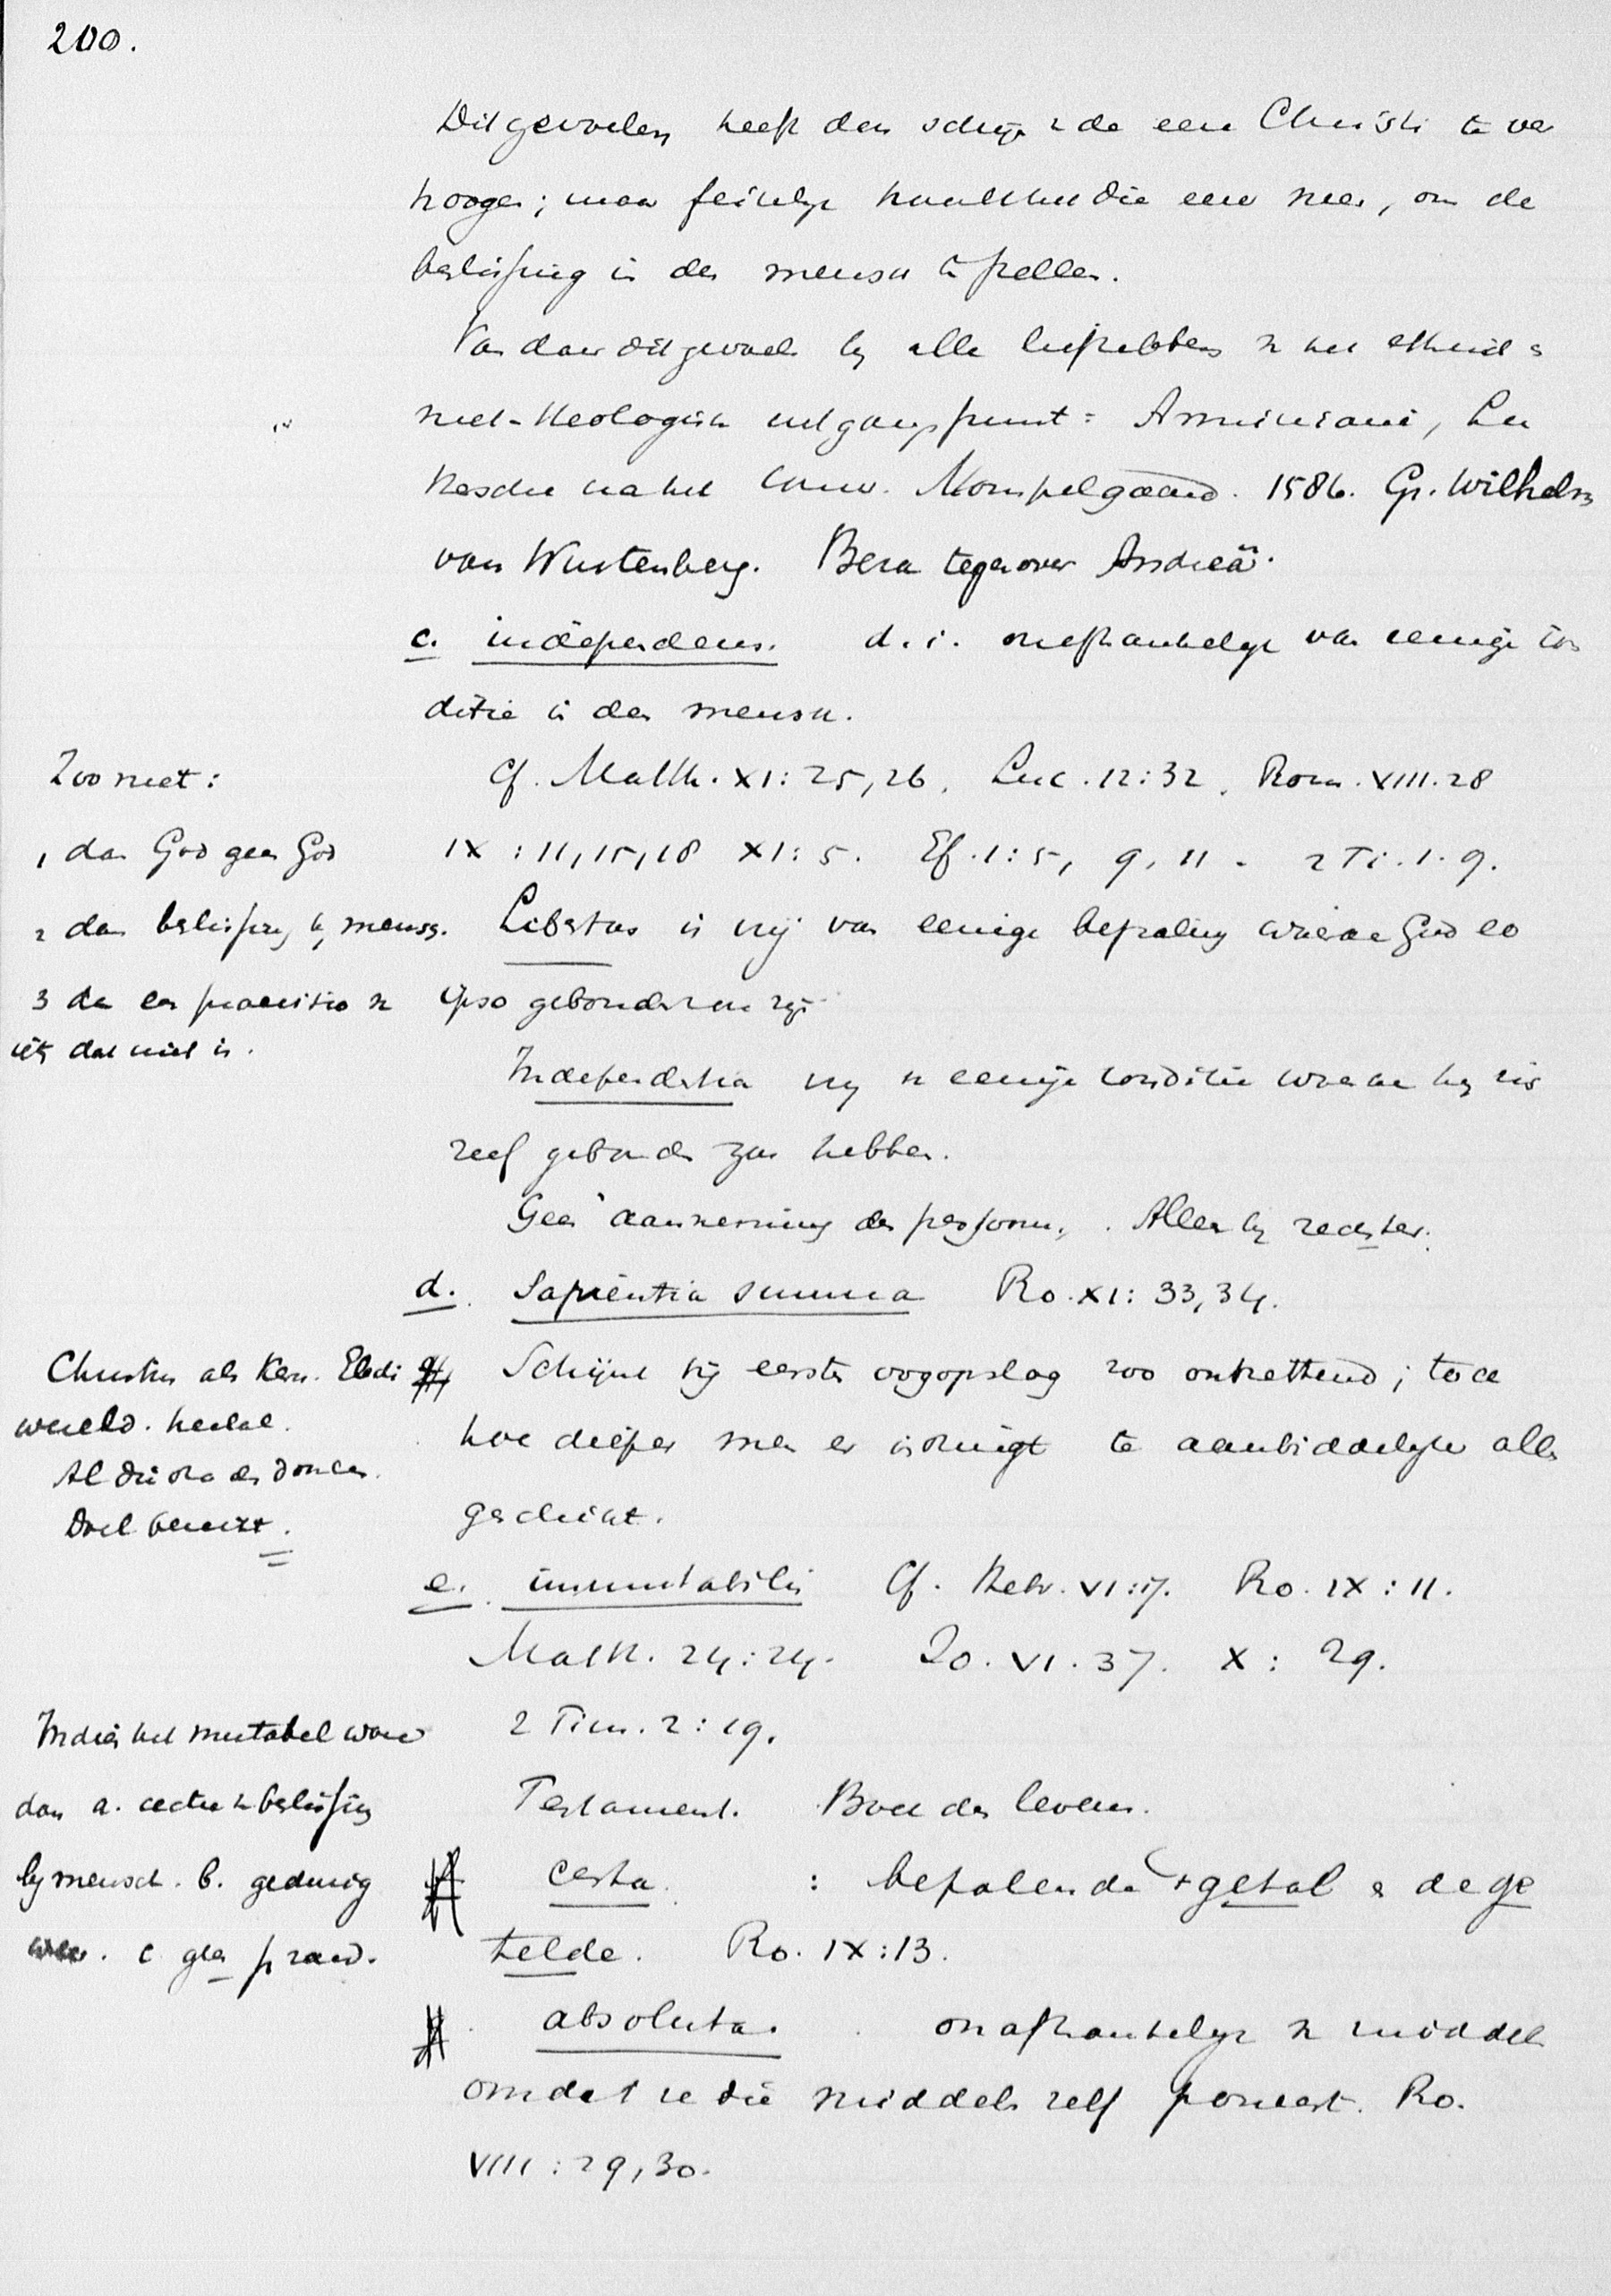 200.
Dit gevoelen heeft den schijn de eere Christi te ver
hoogen; maar feitelijk haalt het die eere neer, om de
beslissing in den mensch te stellen.
Van daar dit gevoelen bij alle liefhebbers v het ethisch =
niet-theologisch uitgangspunt = Arminiani, Lu
thersche na het Conv. Mompelgaard. 1586. Gr. Wilhelm
van Wurtenberg. Beza tegenover Andreä.
c. independens. d.i. onafhankelijk van eenige con
ditie in den mensch.
Zoo niet:
1 dan God geen God
2 dan beslissing bij mensch.
3 dan een praevisio v
iets dat niet is.
Cf. Matth. XI: 25, 26. Luc. 12:32. Rom. VIII. 28
IX : 11, 15, 18 XI: 5. Ef. 1: 5, 9, 11. 2 Ti. 1. 9.
Libertas is vrij van eenige bepaling waaraan God eo
ipso gebonden zou zijn
Independentia vrij v eenige conditie waaraan hij zich
zelf gebonden zou hebben.
Geen aanneming des persoons. Alleen bij rechter.
d. Sapientia summa Ro. XI: 33, 34.
Christus als Kern. Electi
wereld. heelal.
Al die
Doel bereikt.
Schijnt bij eersten oogopslag zoo ontzettend; toch
hoe dieper men er indringt te aanbiddelijker alles
geschikt.
e. immutabilis Cf. Hebr. VI:17. Ro. IX: 11.
Matth. 24:24. Jo. VI. 37. X: 29.
2 Tim. 2: 19.
Testament. Boek des levens.
Indien het mutabel ware
dan a. echte beslissing
bij mensch. b. gedurig
c geen
f. certa : bepalende 't getal & de ge
telde. Ro. IX:13.
g. absoluta. onafhankelijk v middelen
omdat ze die middelen zelf poneert. Ro.
VIII : 29, 30.